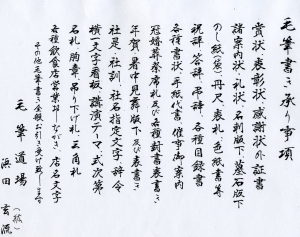 毛筆書き承り事項
賞状、表彰状、感謝状外証書
諸案内状、礼状、名刺版下、墓石版下
のし紙(袋)、丹尺、表札、色紙書等
祝辞、答辞、弔辞、各種目録書
各種書状、手紙代書、催事御案内
冠婚葬祭席札及び各種封書表書き
年賀、暑中見舞版下及び表書き
社是、社訓、社名指定文字、辞令
横(文字)看板、講演テーマ、式次第
名札、胸章、吊り下げ札、三角札
各種飲食店営業おしながき、店名文字
その他毛筆書き全般お引き受け致します
毛筆道場
浜田玄流